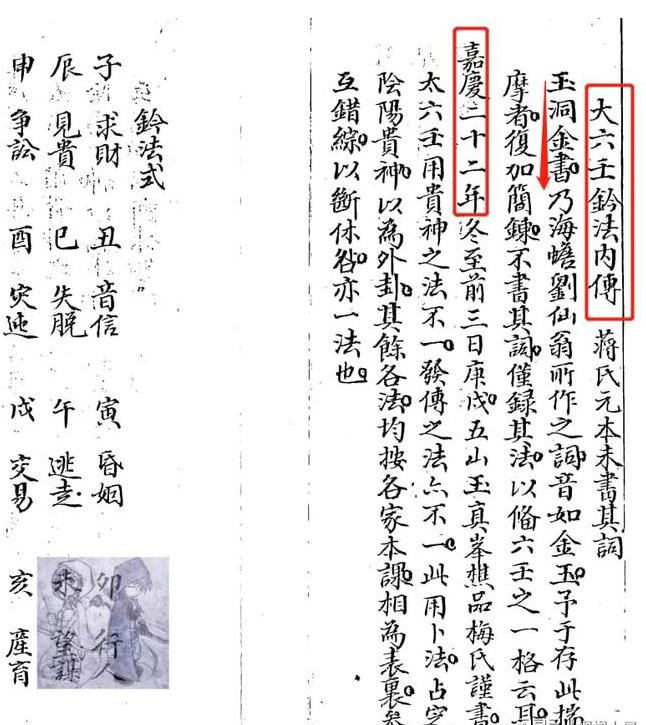 大六壬鈐法內傳 蔣氏元本未書其詞
玉洞金書乃海蟾劉仙翁所作之詞音如金玉予于存此揣
摩者復加簡鍊不書其詞僅録其法以俻六壬之一格云耳
嘉慶二十二年冬至前三日庚戌五山玉真峯樵品梅氏謹書
太六壬用貴神之法不一發傳之法亦不一此用卜法占定
陰陽貴神以為外卦其餘各法均按各家本課相為表裏參
互錯綜以斷休咎亦一法也
鈐法式
子 求財 丑 音信 寅 昏姻 卯 行人
辰 見貴 巳 失脫 午 逃走 未 望謀
申 争訟 酉 灾迍 戌 交易 亥 産育